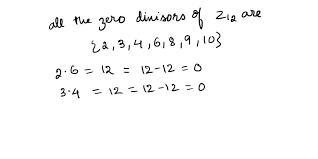 all the zero divisors of Z₁₂ are
{2, 3, 4, 6, 8, 9, 10}
2·6 = 12 = 12-12 = 0
3·4 = 12 = 12-12 = 0